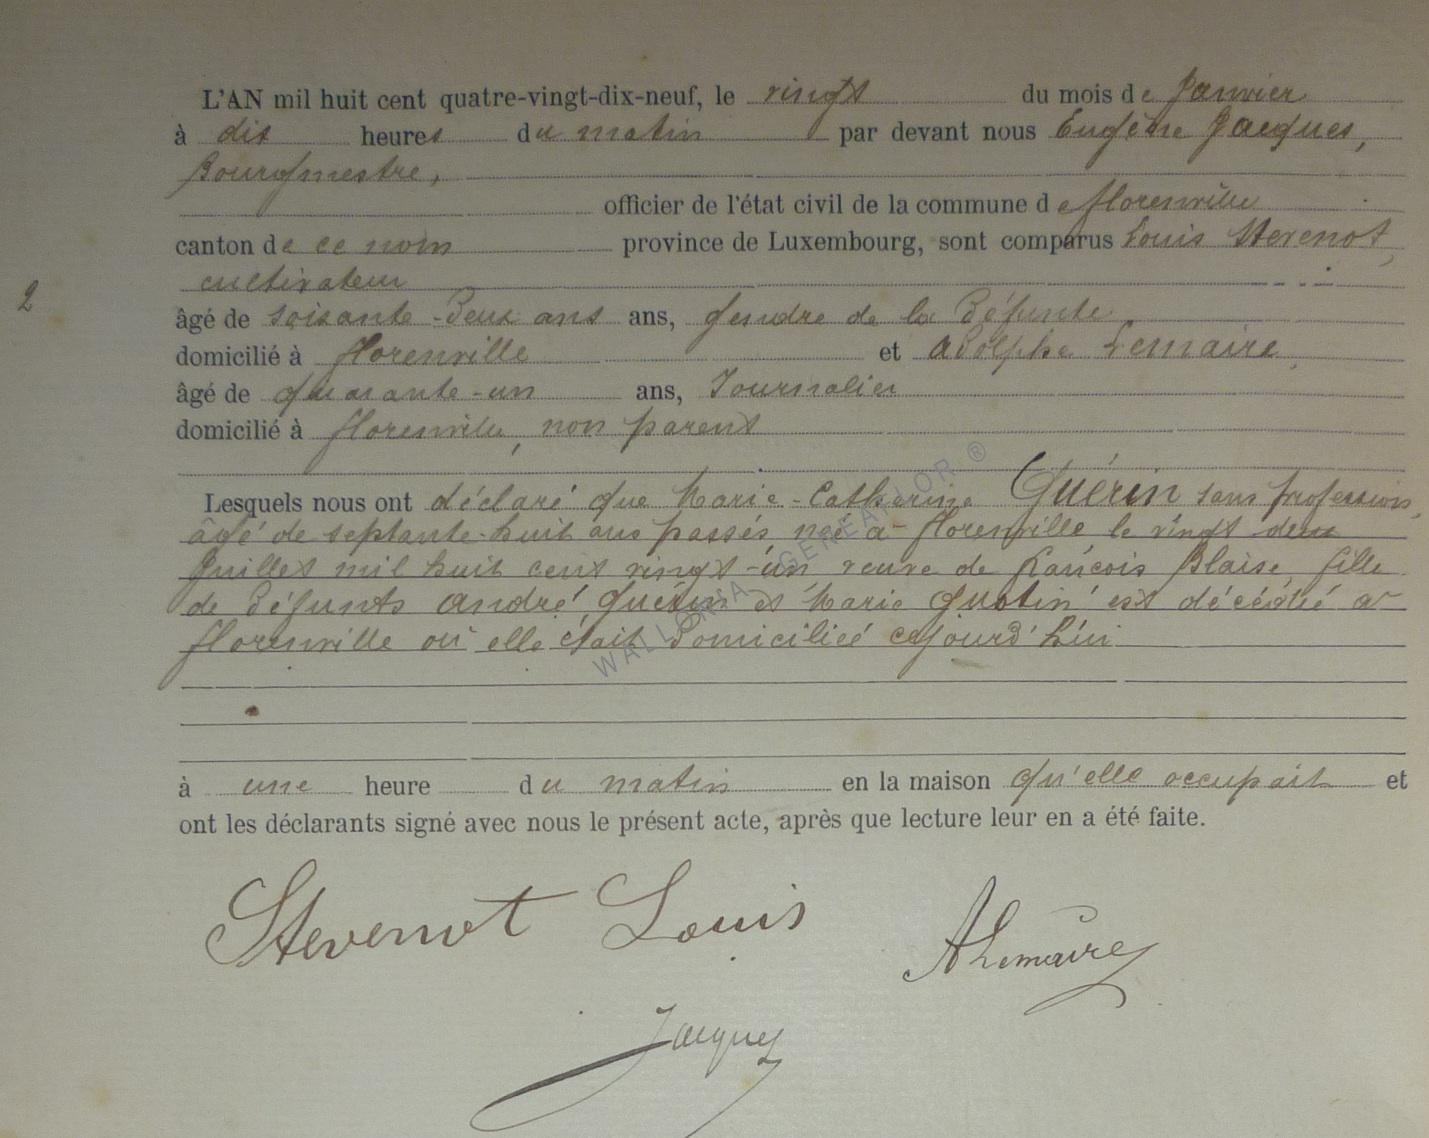 L'AN mil huit cent quatre-vingt-dix-neuf, le vingt du mois de Janvier
à dix heures du matin par devant nous Eugène Jacques,
Bourgmestre,
officier de l'état civil de la commune de florenville
canton de ce nom province de Luxembourg, sont comparus Louis Stevenot,
cultivateur
2
âgé de soixante-deux ans ans, gendre de la défunte
domicilié à florenville et Adolphe Lemaire,
âgé de quarante-un ans, Journalier
domicilié à florenville, non parent
Lesquels nous ont déclaré que Marie-Catherine Guérin sans profession,
âgé de septante-huit ans passés née à florenville le vingt deux
Juillet mil huit cent vingt-un veuve de francois Blaise, fille
de défunts André Guérin et Marie est décédée à
florenville où elle était domiciliée cejourd'hui
à une heure du matin en la maison qu'elle occupait et
ont les déclarants signé avec nous le présent acte, après que lecture leur en a été faite.
WALLONIA GENEALOR ®
Stevenot Louis
ALemaire
Jacques